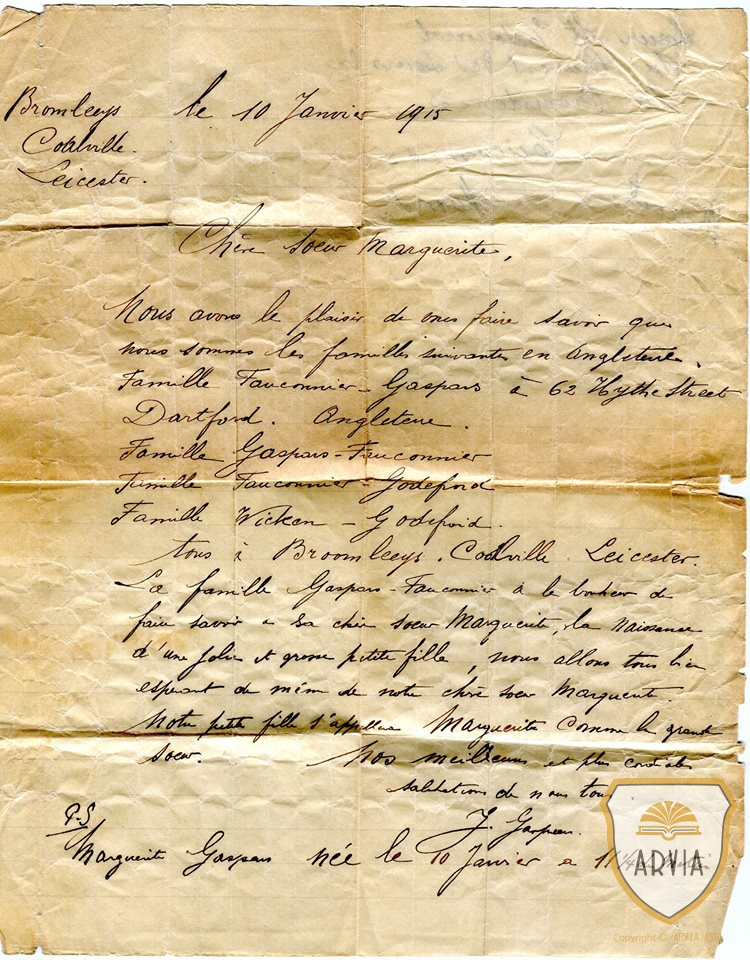 Bromleeys le 10 Janvier 1915
Coalville.
Leicester.
Chère soeur Marguerite,
Nous avons le plaisir de vous faire savoir que
nous sommes les familles suivantes en Angleterre.
Famille Fauconnier-Gaspars à 62 Hythe Street
Dartford. Angleterre.
Famille Gaspars-Fauconnier
Famille Fauconnier-Godefroid
Famille Wicken - Godefroid.
tous à Broomleeys. Coalville. Leicester.
La famille Gaspars-Fauconnier à le bonheur de
faire savoir a sa chère soeur Marguerite, la naissance
d'une jolie et grosse petite fille, nous allons tous bien
espérant de même de notre chère soeur Marguerite.
Notre petite fille s'appellera Marguerite comme la grande
soeur. Nos meilleures et plus cordiales
salutations de nous tous
J. Gaspars.
P-S
Marguerite Gaspars née le 10 Janvier a 11
ARVIA
Copyright © ARVIA